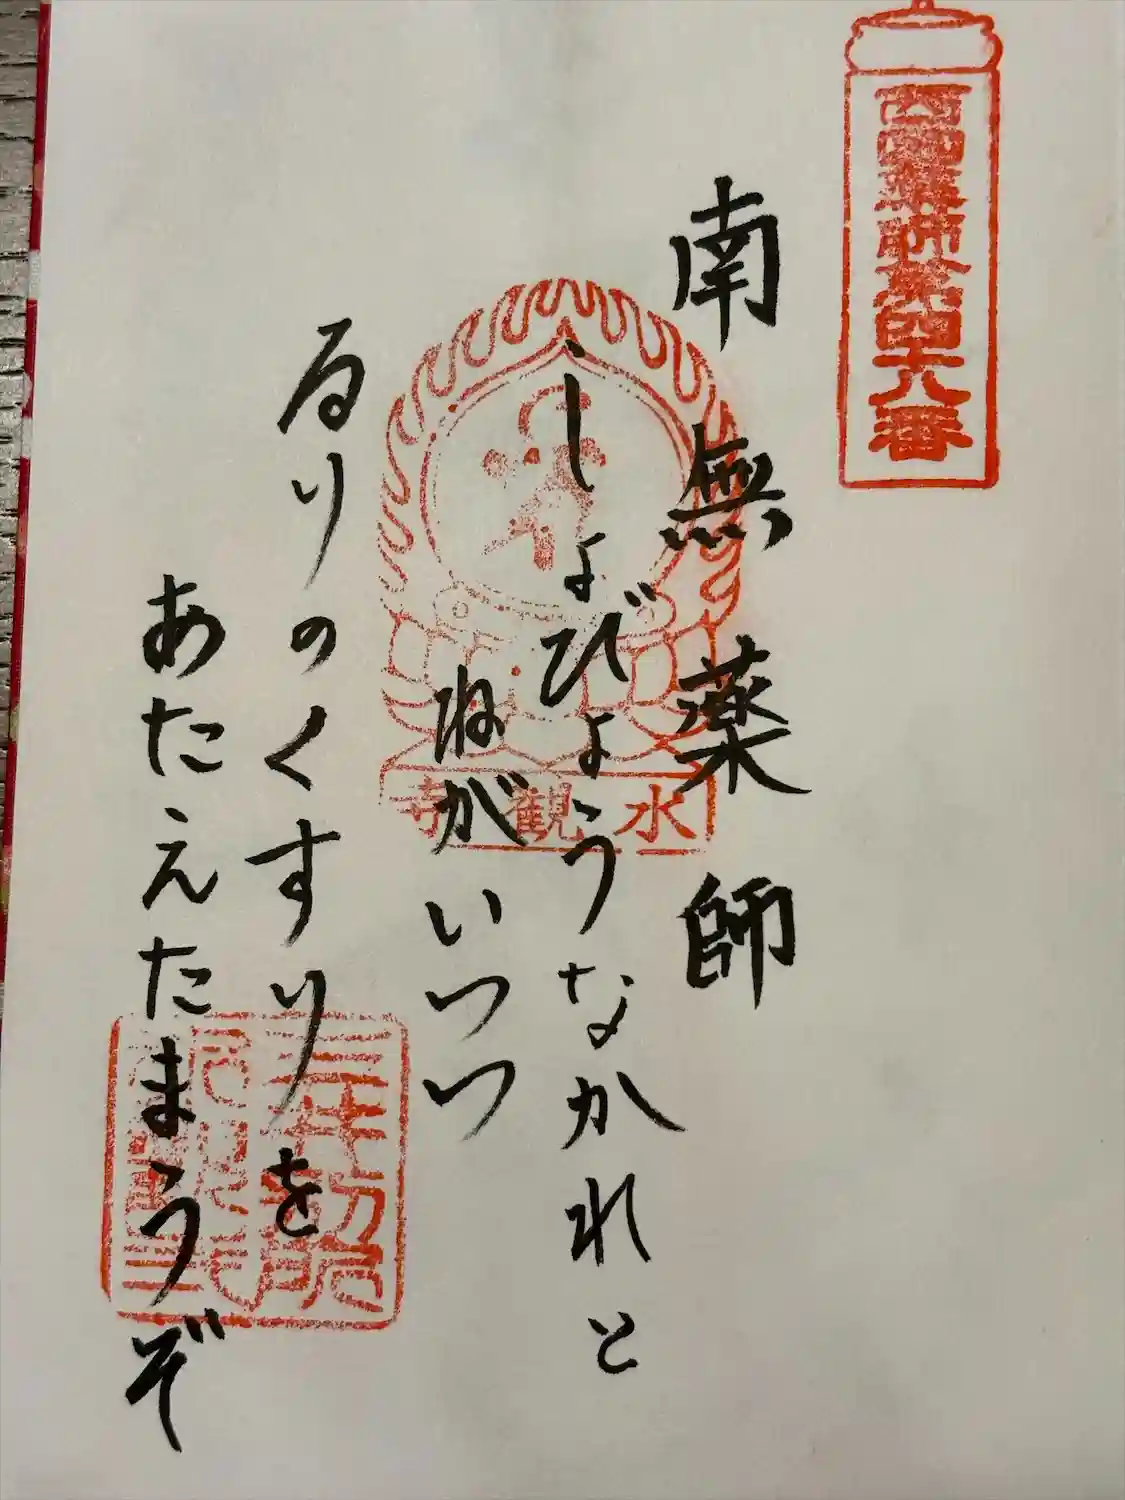 西国薬師第四十八番
南無薬師
しょびょうなかれと
ねがいつつ
るりのくすりを
あたえたまうぞ
水観寺